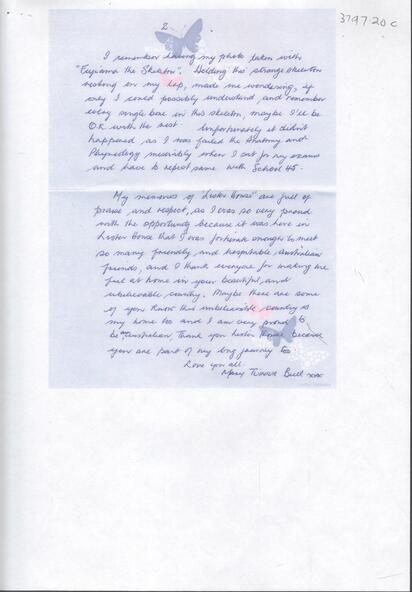 2
379720c
I remember having my photo taken with
"Fujiama the Skeleton". Holding this strange skeleton
resting on my lap, made me wondering, if
only I could possibly understand and remember
every single bone in this skeleton, maybe I'll be
O.K with the rest. Unfortunately it didn't
happened, as I was failed the Anatomy and
Physiology miserably when I sat for my exams
and have to repeat same with School 45.
My memories of "Lister House" are full of
praise and respect, as I was so very proud
with the opportunity because it was here in
Lister House that I was fortunate enough to meet
so many friendly and hospitable Australian
friends, and I thank everyone for making me
feel at home in your beautiful, and
unbelievable, country. Maybe there are some
of you know this unbelievable country is
my home too and I am very proud to
be Australian. Thank you Lister House because
you are part of my long journey too
Love you all.
Mary Bull xxx